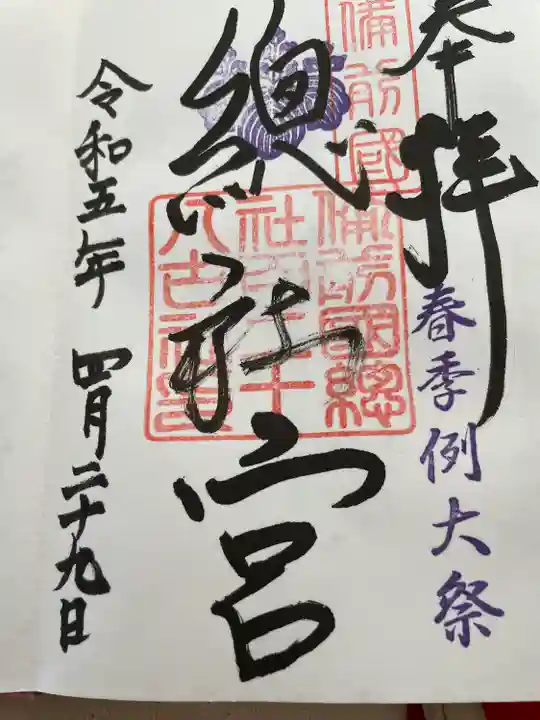 奉拝
春季例大祭
備前國
總社宮
備前國總
社
令和五年 四月二十九日